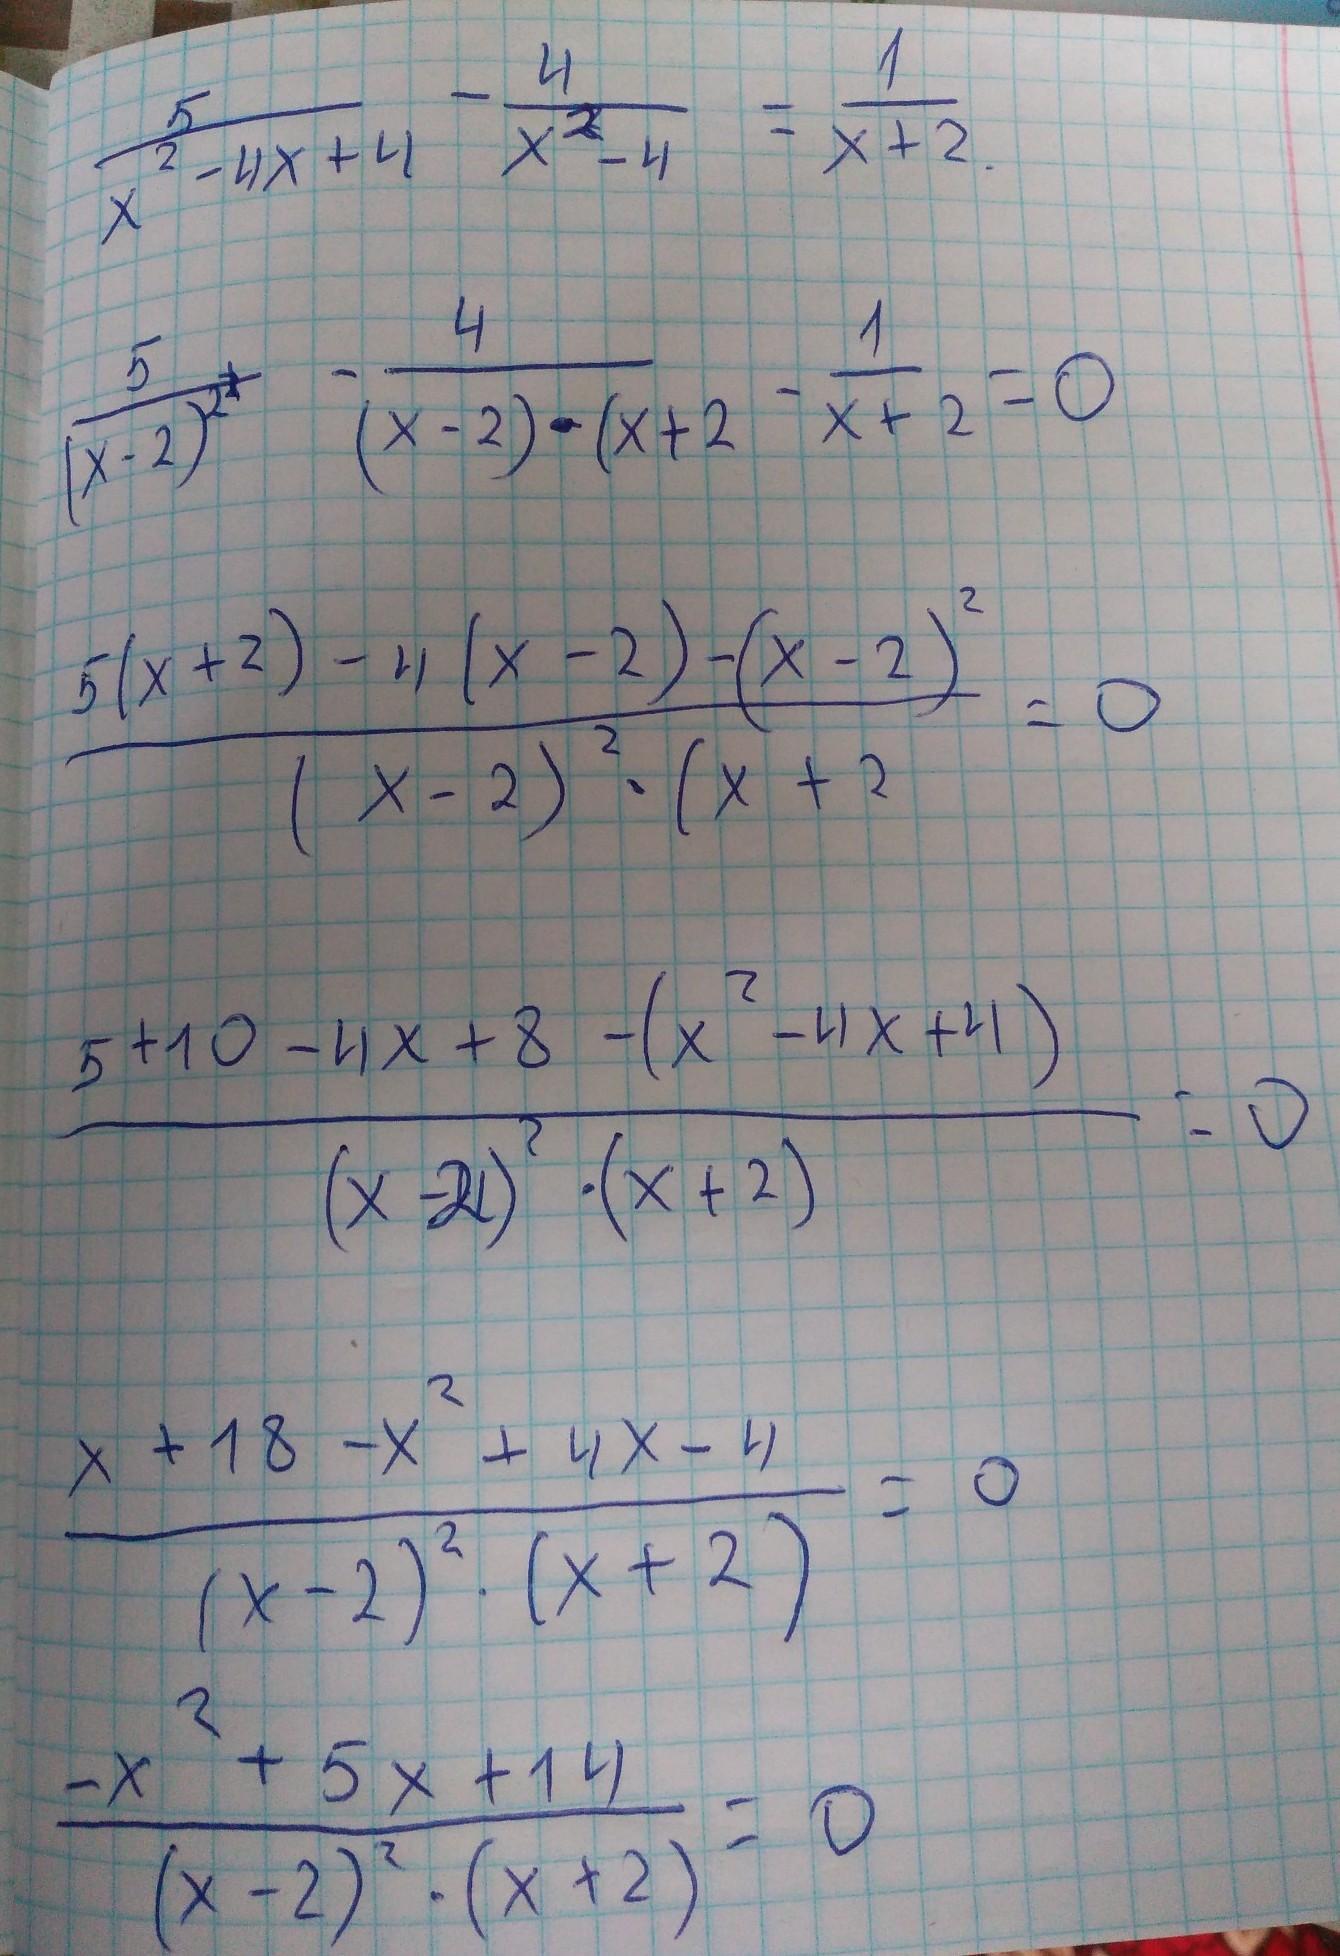 5/(x² - 4x + 4) - 4/(x² - 4) = 1/(x + 2).
5/(x - 2)² - 4/((x - 2) · (x + 2 - 1/(x + 2 = 0
(5(x + 2) - 4(x - 2) - (x - 2)²)/((x - 2)² · (x + 2 = 0
(5 + 10 - 4x + 8 - (x² - 4x + 4))/((x - 2)² · (x + 2)) = 0
(x + 18 - x² + 4x - 4)/((x - 2)² · (x + 2)) = 0
(-x² + 5x + 14)/((x - 2)² · (x + 2)) = 0